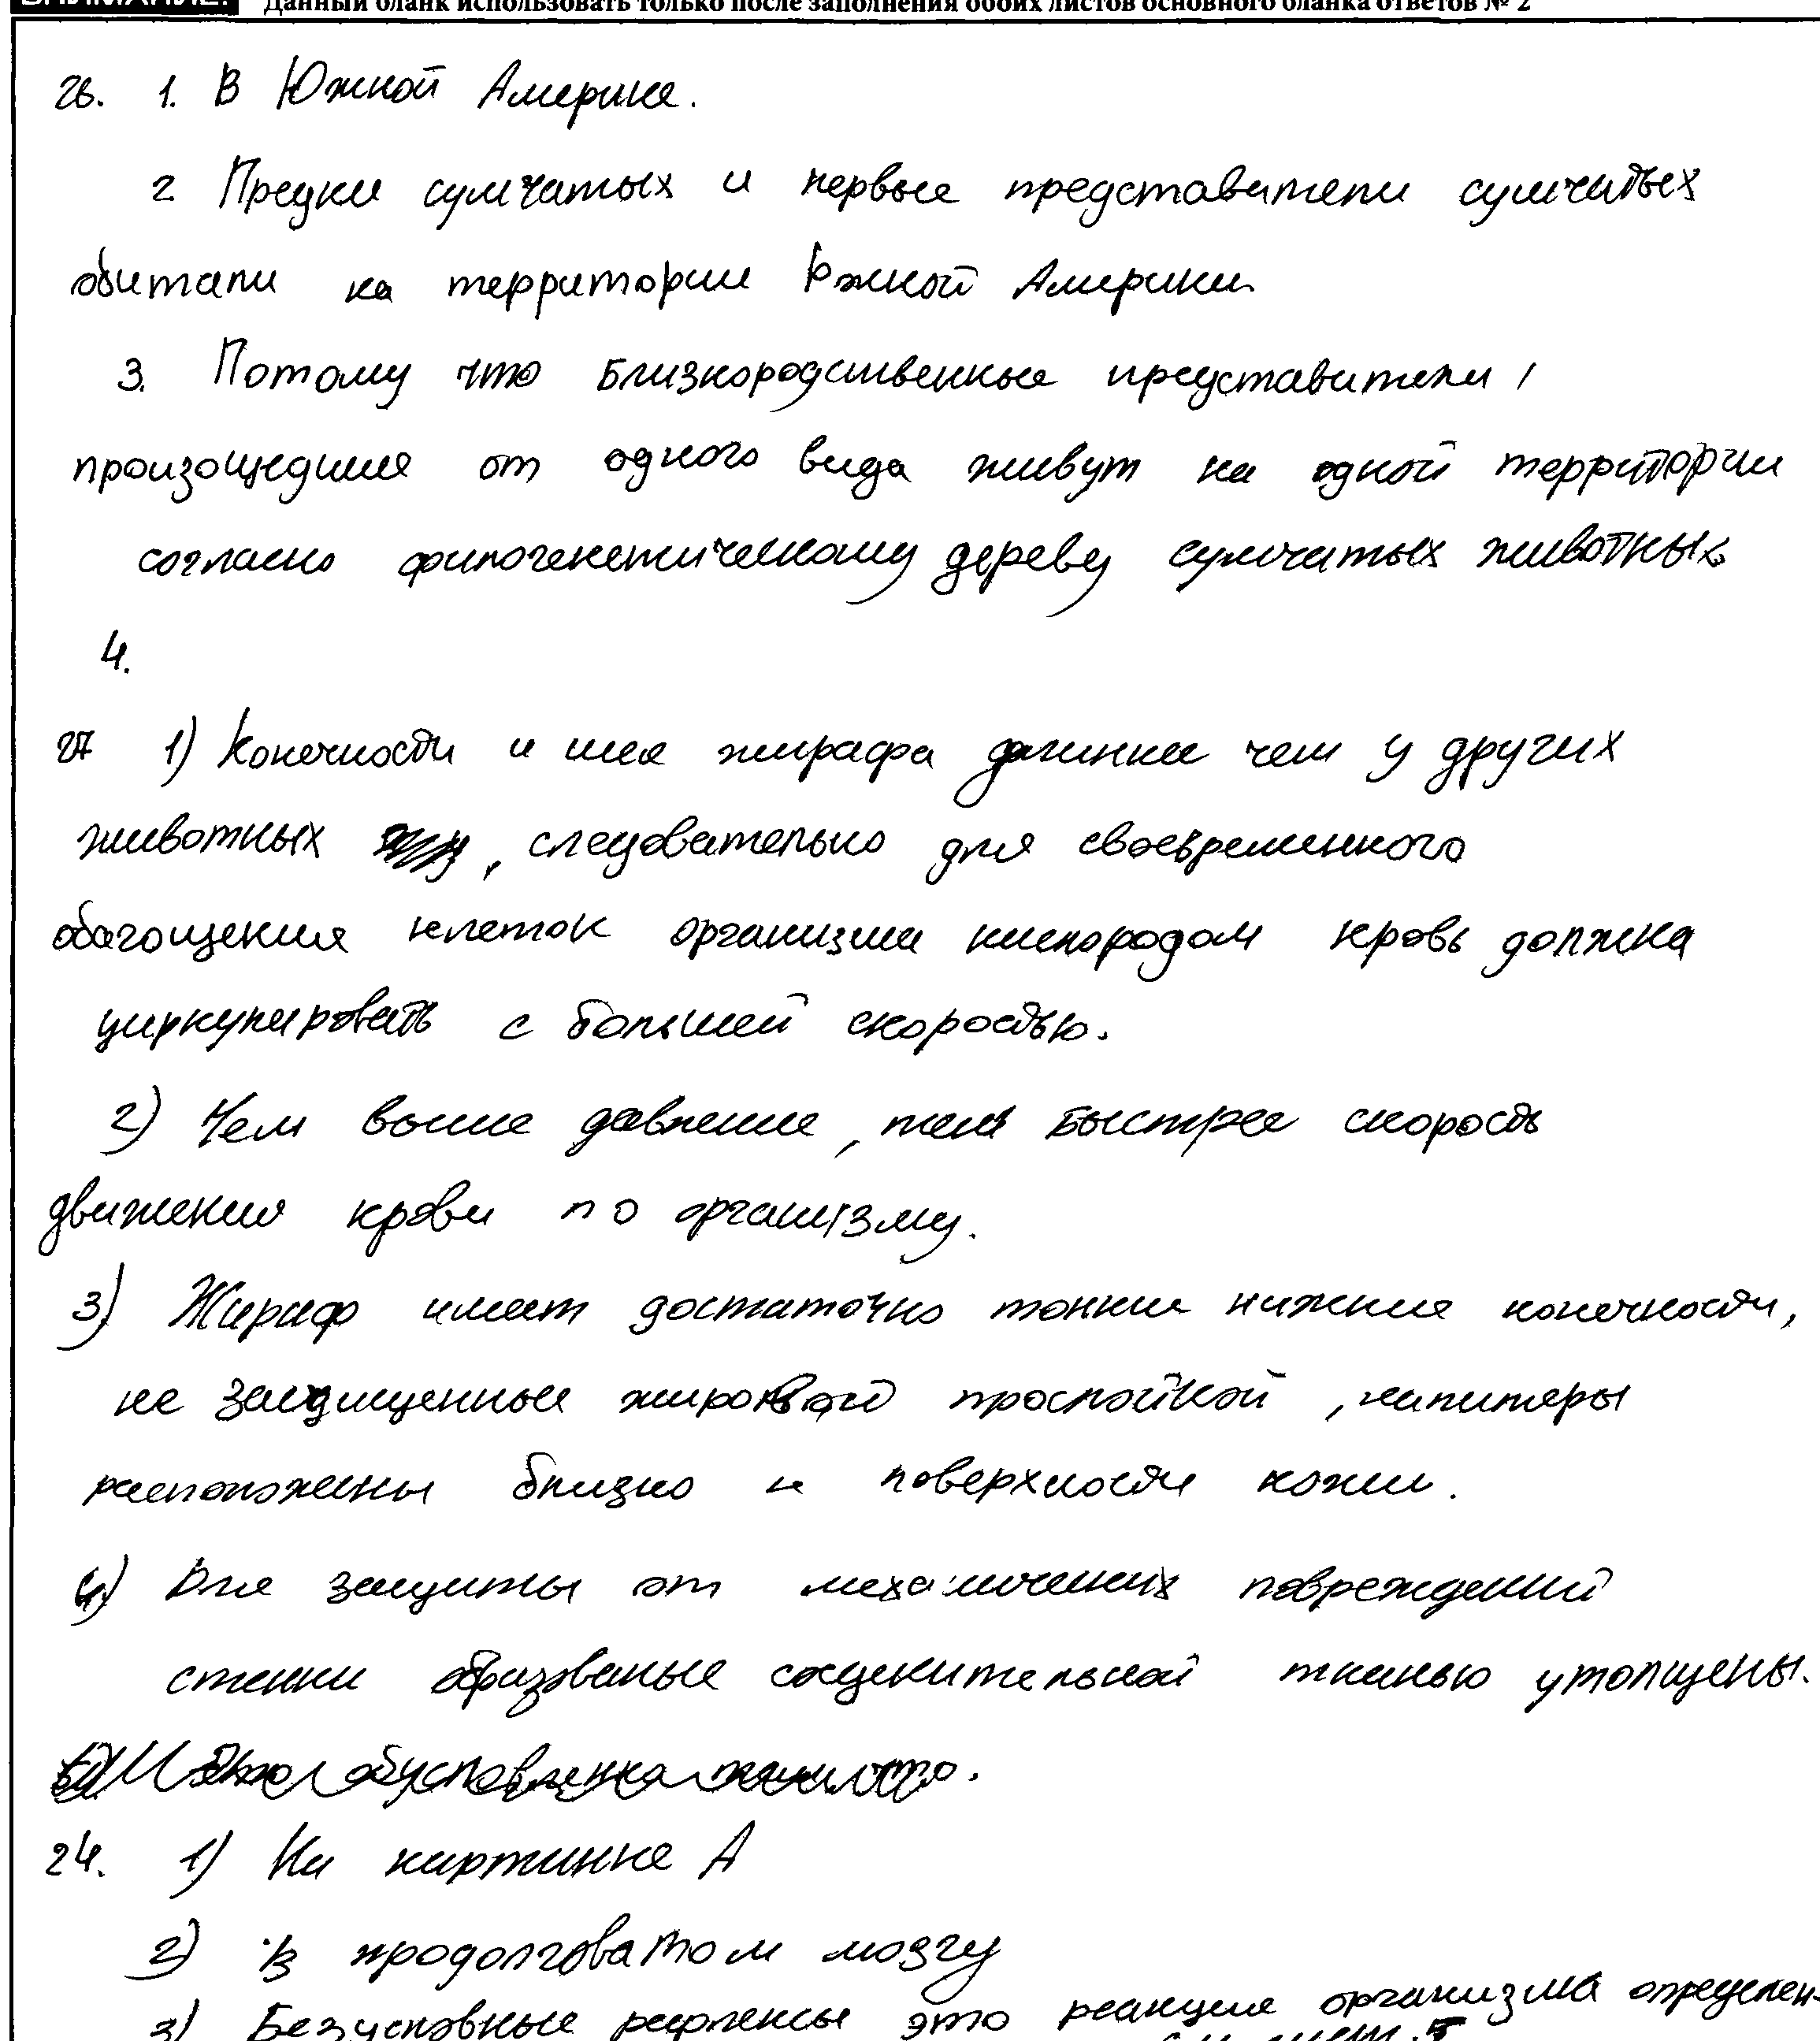 Данный бланк использовать только после заполнения обоих листов основного бланка ответов № 2
26. 1. В Южной Америке.
2 Предки сумчатых и первые представители сумчатых
обитали на территории Южной Америки.
3. Потому что близкородственные представители,
произощедшие от одного вида живут на одной территории
согласно филогенетическому дереву сумчатых животных
4.
27 1) Конечности и шея жирафа длинне чем у других
животных , следовательно для своевременного
обагощения клеток организма кислородом кровь должна
циркулировать с большей скоростью.
2) Чем выше давление, тем быстрее скорость
движения крови по организму.
3) Жираф имеет достаточно тонкие нижние конечности,
не защищенные жировой прослойкой, капиляры
расположены близко к поверхности кожи.
4) Для защиты от механических повреждений
стенки образованые соеденительной тканью утолщены.
24. 1) На картинке А
2) В продолговатом мозгу
3) Безусловные рефлексы это реакция организма определен-